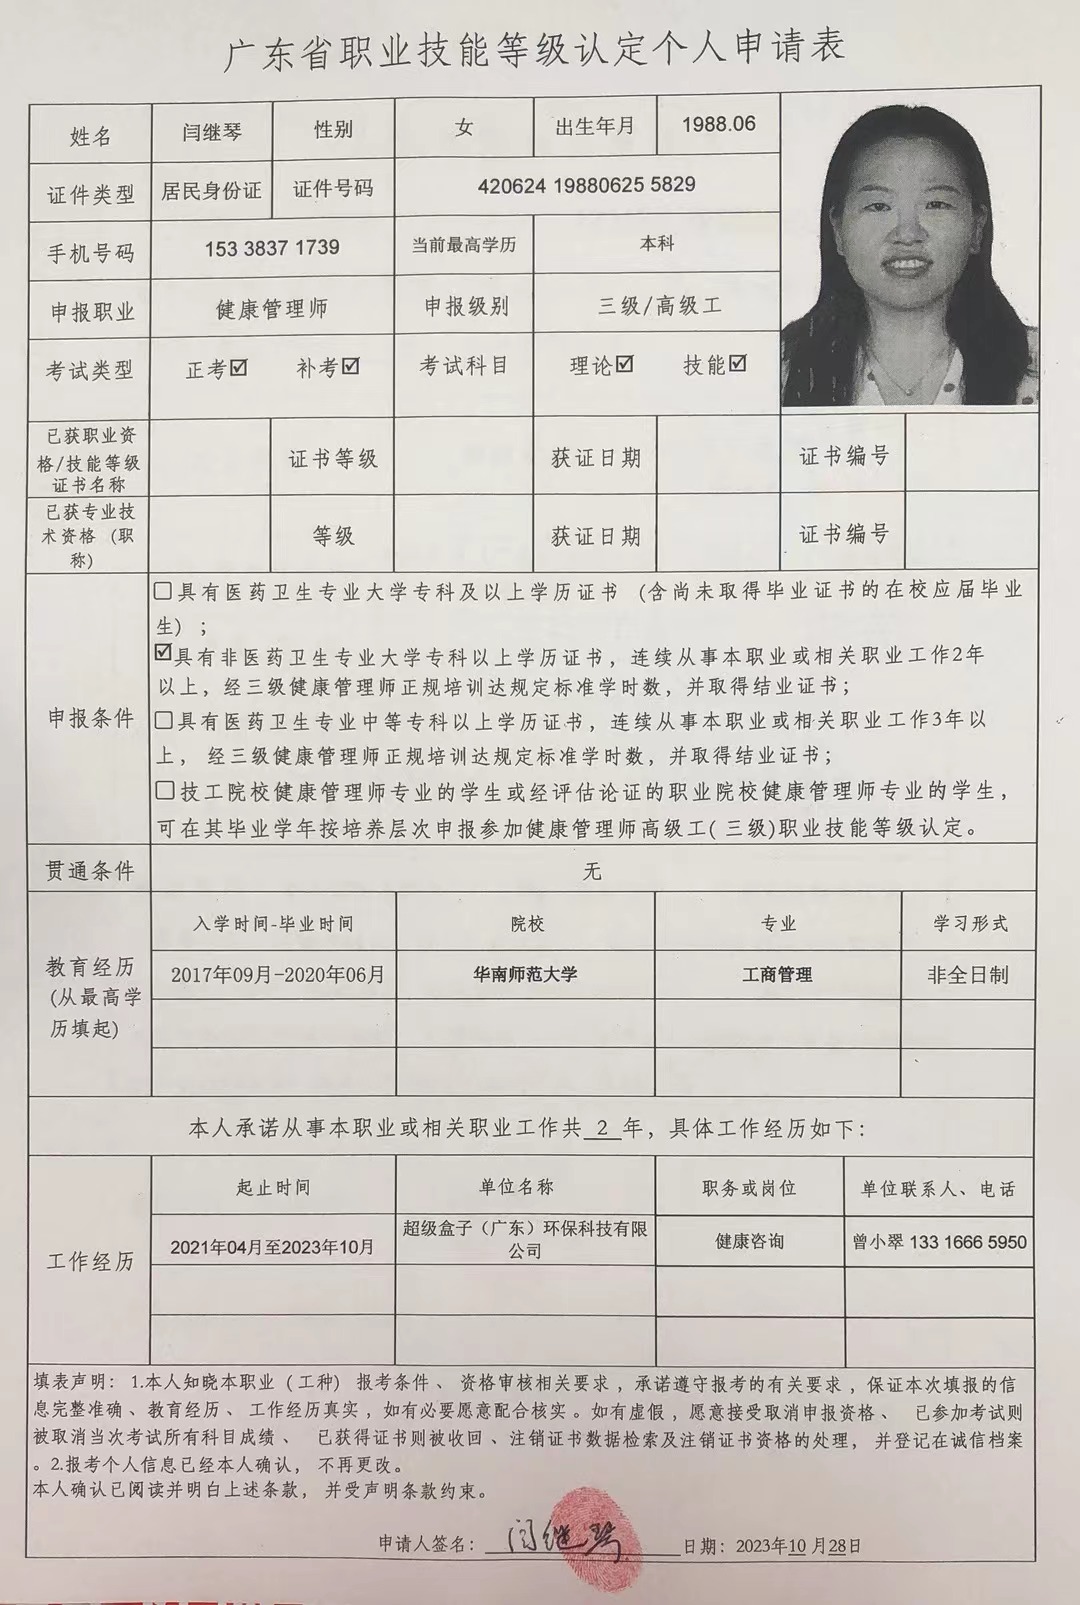 广东省职业技能等级认定个人申请表
姓名 闫继琴 性别 女 出生年月 1988.06
证件类型 居民身份证 证件号码 420624 19880625 5829
手机号码 153 3837 1739 当前最高学历 本科
申报职业 健康管理师 申报级别 三级/高级工
考试类型 正考☑ 补考☑ 考试科目 理论☑ 技能☑
已获职业资
格/技能等级
证书名称
证书等级 获证日期 证书编号
已获专业技
术资格（职
称）
等级 获证日期 证书编号
申报条件
☐具有医药卫生专业大学专科及以上学历证书（含尚未取得毕业证书的在校应届毕业
生）；
☑具有非医药卫生专业大学专科以上学历证书，连续从事本职业或相关职业工作2年
以上，经三级健康管理师正规培训达规定标准学时数，并取得结业证书；
☐具有医药卫生专业中等专科以上学历证书，连续从事本职业或相关职业工作3年以
上， 经三级健康管理师正规培训达规定标准学时数，并取得结业证书；
☐技工院校健康管理师专业的学生或经评估论证的职业院校健康管理师专业的学生，
可在其毕业学年按培养层次申报参加健康管理师高级工(三级)职业技能等级认定。
贯通条件 无
教育经历
(从最高学
历填起)
入学时间-毕业时间 院校 专业 学习形式
2017年09月-2020年06月 华南师范大学 工商管理 非全日制
本人承诺从事本职业或相关职业工作共 2 年，具体工作经历如下：
工作经历
起止时间 单位名称 职务或岗位 单位联系人、电话
2021年04月至2023年10月 超级盒子（广东）环保科技有限
公司
健康咨询 曾小翠 133 1666 5950
填表声明： 1.本人知晓本职业（工种）报考条件、 资格审核相关要求，承诺遵守报考的有关要求，保证本次填报的信
息完整准确、教育经历、 工作经历真实，如有必要愿意配合核实。如有虚假，愿意接受取消申报资格、 已参加考试则
被取消当次考试所有科目成绩、 已获得证书则被收回、注销证书数据检索及注销证书资格的处理， 并登记在诚信档案
。2.报考个人信息已经本人确认， 不再更改。
本人确认已阅读并明白上述条款， 并受声明条款约束。
申请人签名： 闫继琴 日期： 2023年10月28日